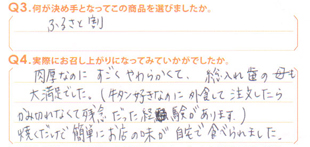 Q3.何が決め手となってこの商品を選びましたか。
ふるさと割
Q4.実際にお召し上がりになってみていかがでしたか。
肉厚なのに すごくやわらかくて、 総入れ歯の母も
大満足でした。(牛タン好きなのに外食して注文したら
かみ切れなくて残念だった経験があります。)
焼くだけで簡単にお店の味が自宅で食べられました。